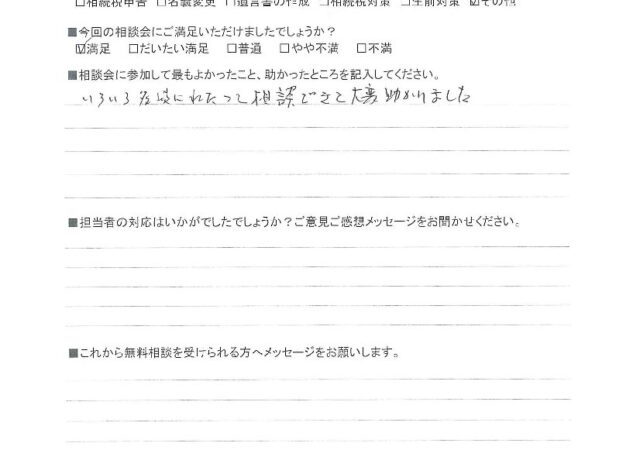 □相続税申告 □名義変更 □遺言書の作成 □相続税対策 □生前対策 ☑その他
■今回の相談会にご満足いただけましたでしょうか?
☑満足 □だいたい満足 □普通 □やや不満 □不満
■相談会に参加して最もよかったこと、助かったところを記入してください。
いろいろ多岐にわたって相談できて大変助かりました
■担当者の対応はいかがでしたでしょうか?ご意見ご感想メッセージをお聞かせください。
■これから無料相談を受けられる方へメッセージをお願いします。